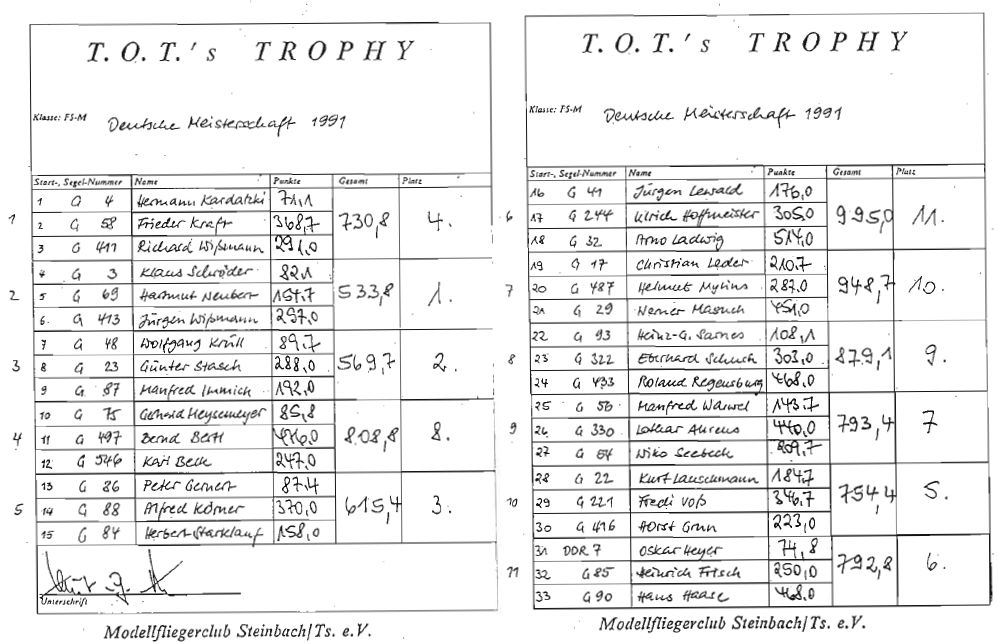 T. O. T.'s TROPHY
Klasse: F5-M Deutsche Meisterschaft 1991
Start-, Segel-Nummer Name Punkte Gesamt Platz
1 G 4 Hermann Kardatzki 71,1
1 2 G 58 Frieder Kraft 368,7 730,8 4.
3 G 411 Richard Wißmann 291,0
4 G 3 Klaus Schröder 82,1
2 5 G 69 Hartmut Neubert 154,7 533,8 1.
6. G 413 Jürgen Wißmann 297,0
7 G 48 Wolfgang Krüll 89,7
3 8 G 23 Günter Stasch 288,0 569,7 2.
9 G 87 Manfred Immich 192,0
10 G 75 Gerhard Heysemeyer 85,8
4 11 G 497 Bernd Bertl 476,0 808,8 8.
12 G 546 Karl Beck 247,0
13 G 86 Peter Gernert 87,4
5 14 G 88 Alfred Körner 370,0 615,4 3.
15 G 84 Herbert Starklauf 158,0
Unterschrift
Modellfliegerclub Steinbach/Ts. e.V.
T. O. T.'s TROPHY
Klasse: F5-M Deutsche Meisterschaft 1991
Start-, Segel-Nummer Name Punkte Gesamt Platz
16 G 41 Jürgen Lewald 176,0
6 17 G 244 Ulrich Hoffmeister 305,0 995,0 11.
18 G 32 Arno Ladwig 514,0
19 G 17 Christian Leder 210,7
7 20 G 487 Helmut Mylius 287,0 948,7 10.
21 G 29 Werner 451,0
22 G 93 Heinz-G. Sarnes 108,1
8 23 G 322 Eberhard Schuch 303,0 879,1 9.
24 G 433 Roland Regensburg 468,0
25 G 56 Manfred 143,7
9 26 G 330 Lothar Ahrens 440,0 793,4 7
27 G 54 Wiko Seebeck 209,7
28 G 22 Kurt Lauschmann 184,7
10 29 G 221 Fredi Voß 346,7 754,4 5.
30 G 416 Horst Grun 223,0
31 DDR 7 Oskar Heyer 74,8
11 32 G 85 Heinrich Frisch 250,0 792,8 6.
33 G 90 Hans Haase 468,0
Modellfliegerclub Steinbach/Ts. e.V.